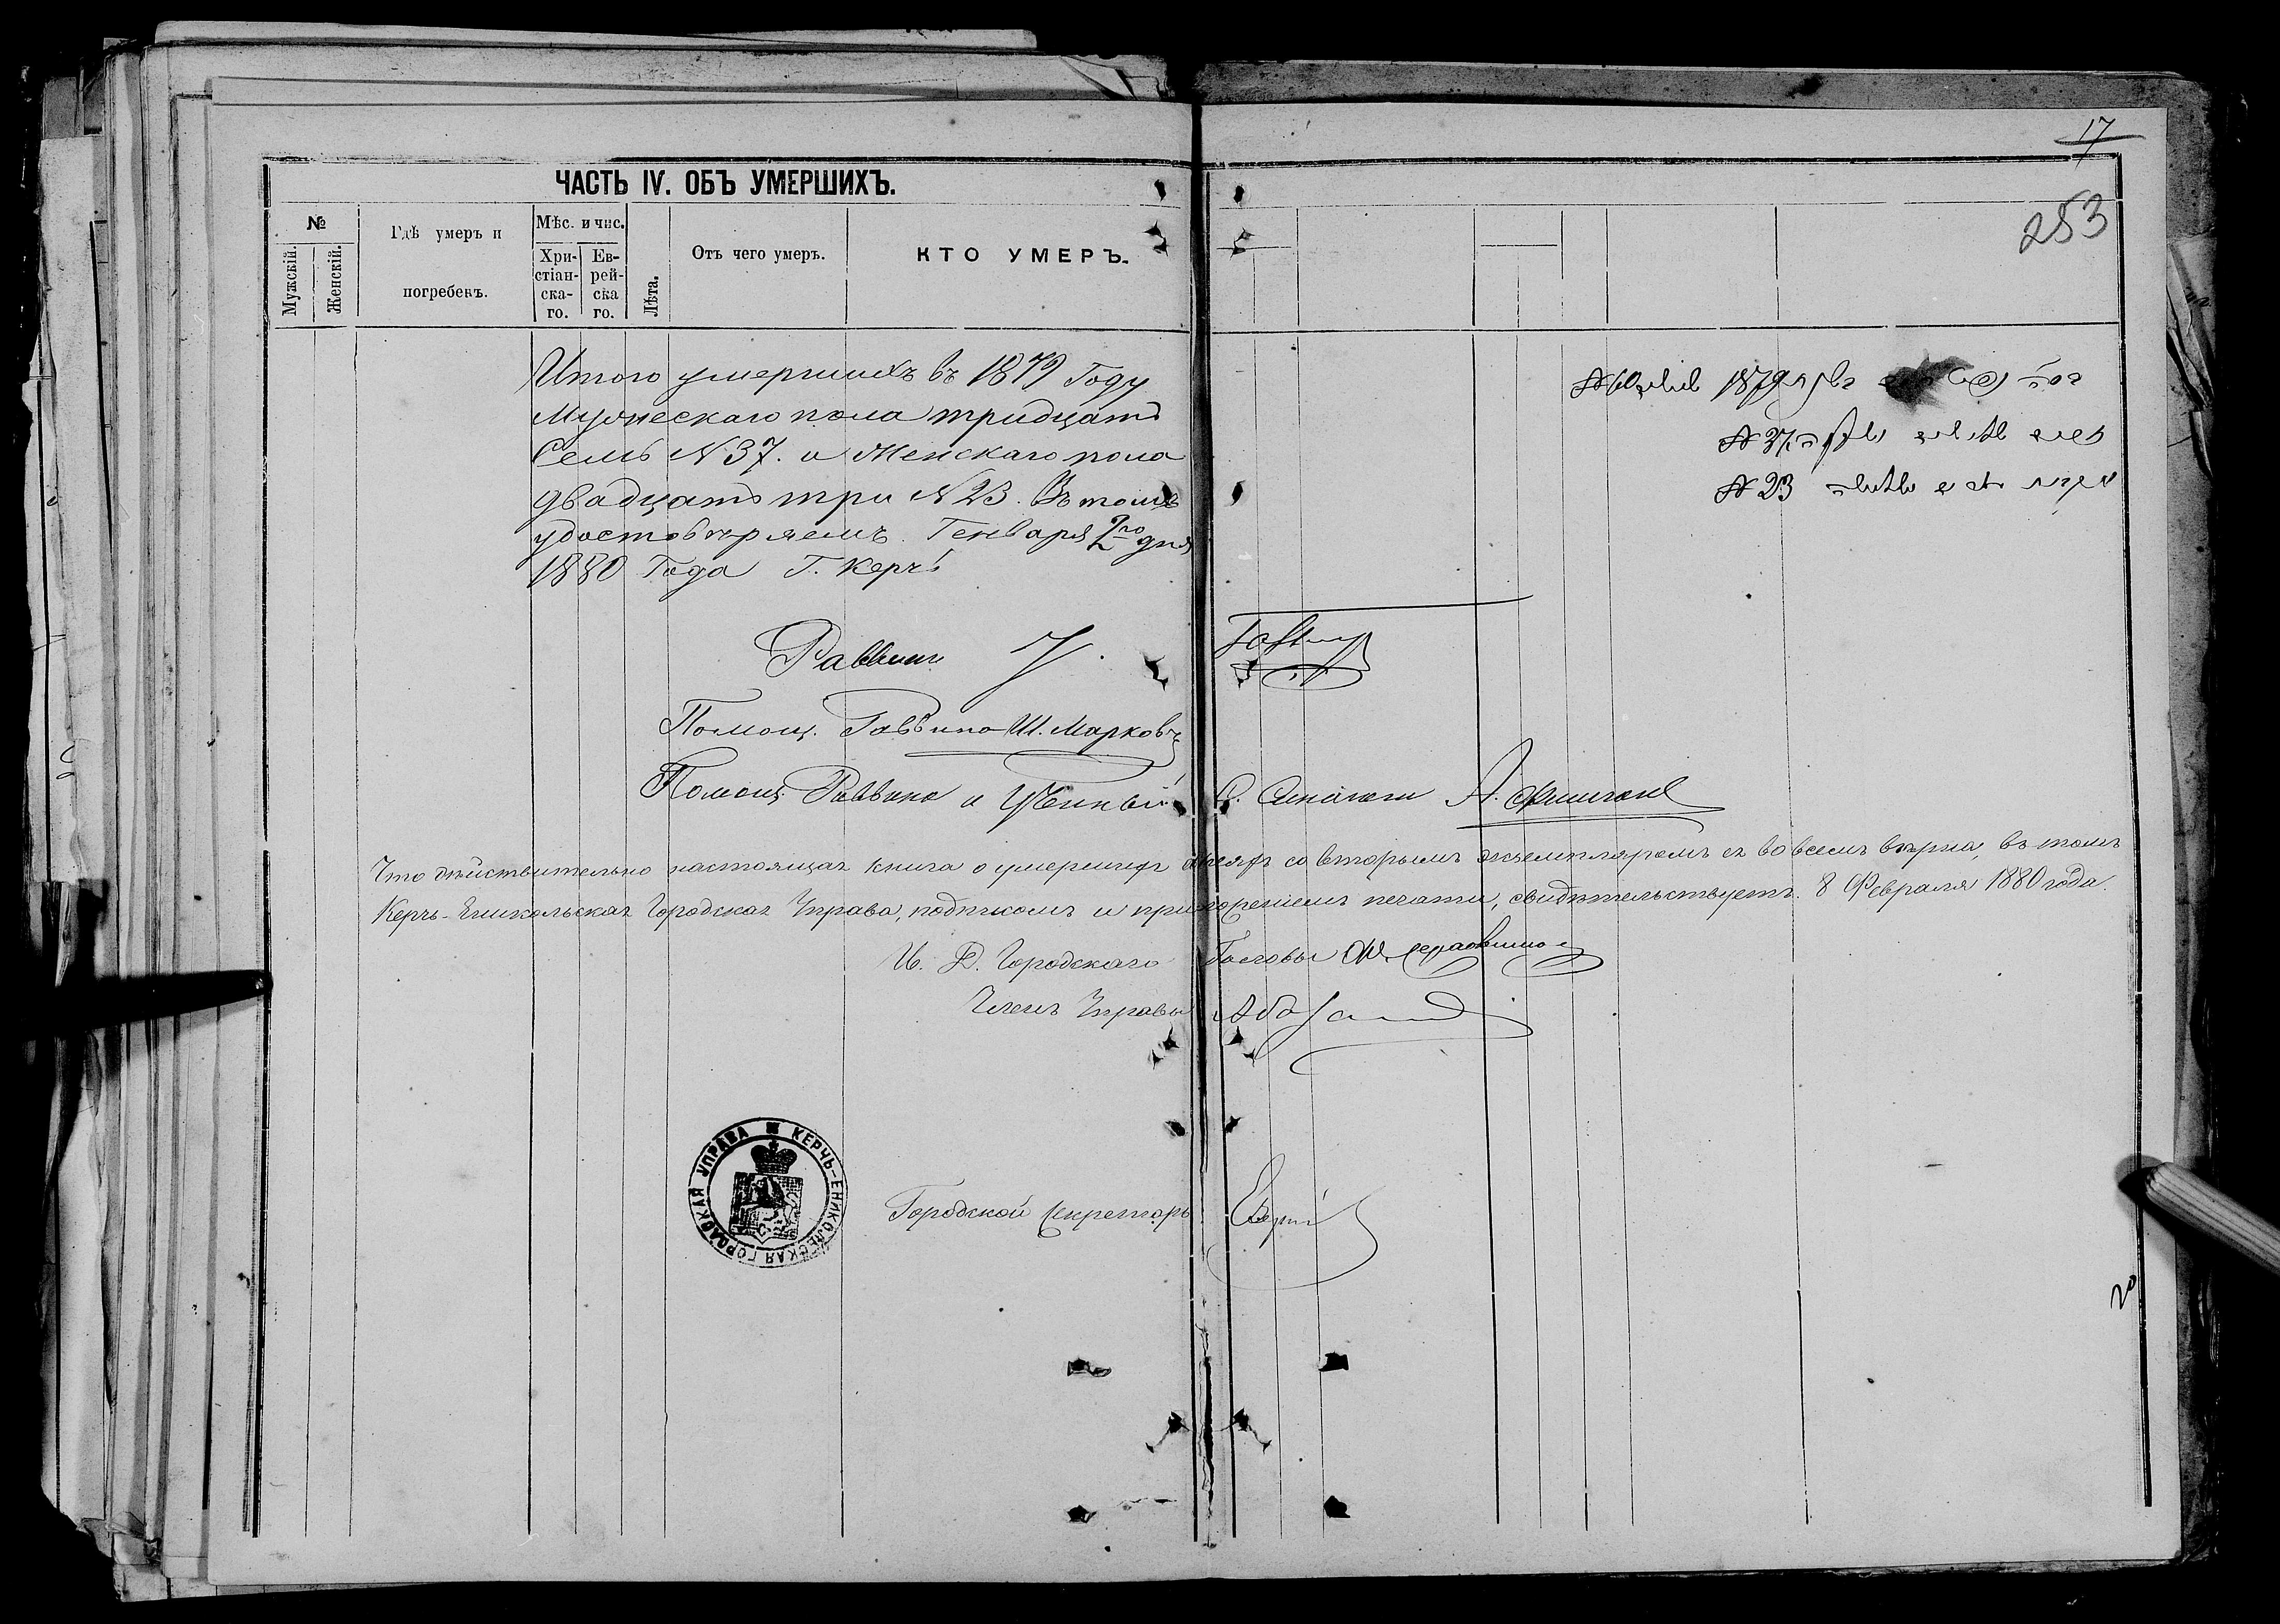 17
253
ЧАСТЬ IV. ОБЪ УМЕРШИХЪ.
№
Мужскій.
Женскій.
Гдѣ умеръ и
погребенъ.
Мѣс. и чис.
Хри-
стіан-
ска-
го.
Ев-
рей-
ска
го.
Лѣта.
Отъ чего умеръ.
КТО УМЕРЪ.
Итого умершихъ въ 1879 Году
Мужескаго пола тридцать
Семь N 37. и Женскаго пола
двадцать три N 23. Въ томъ
удостовѣряемъ. Генваря 2го дня
1880 Года Г. Керчь
1879
N 37
N 23
Раввинъ
Помощ. Раввина Ш. Марковъ
Помощ. Раввина и Ученый
Что дѣйствительно настоящая книга о умершихъ со вторымъ экземпляромъ ея во всемъ вѣрна, въ томъ
Керчь-Еникольская Городская Управа, подписомъ и приложеніемъ печати, свидѣтельствуетъ. 8 Февраля 1880 года.
И. Д. Городскаго Головы
Членъ Управы
КЕРЧЬ-ЕНИКОЛЬСКАЯ ГОРОДСКАЯ УПРАВА
Городской Секретарь
20